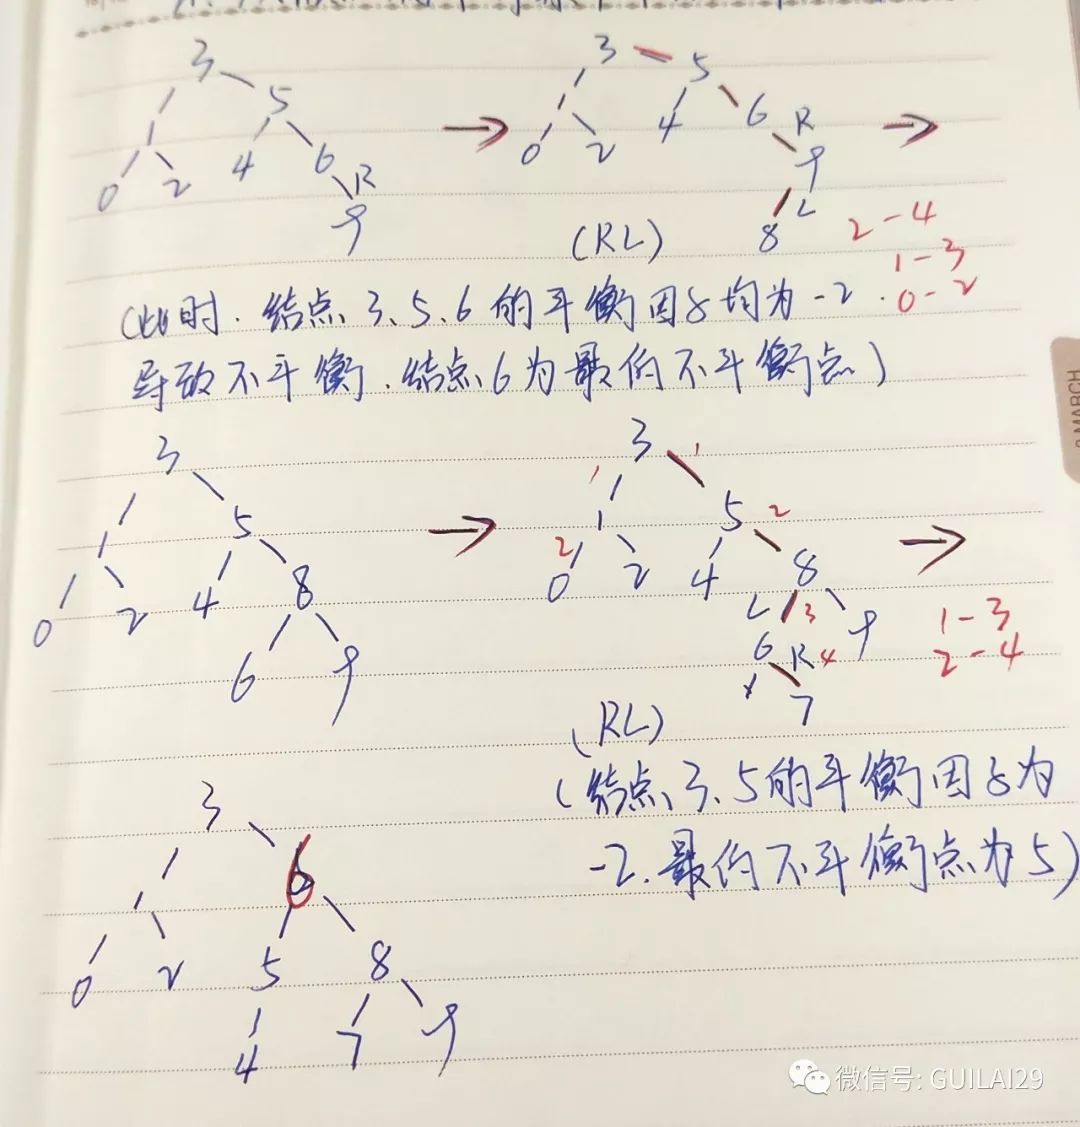 3 3
5 5
1 4 6 R 1 4 6 R
0 2 9 0 2 9
8 L
(RL)
2-4
1-3
0-2
(此时.结点3、5、6的平衡因子均为-2.
导致不平衡.结点6为最低不平衡点)
3 3 1
1 5 1 5 2
0 2 4 8 2 0 2 4 8
6 9 L 3 9
6 R 4
7
1-3
2-4
(RL)
(结点3、5的平衡因子为
-2.最低不平衡点为5)
3
1 6
0 2 5 8
4 7 9
3 MARCH
微信号: GUILAI29